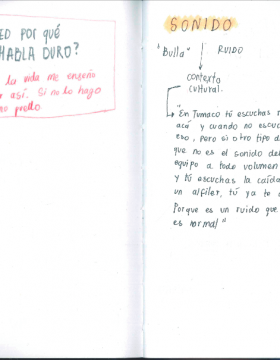 ED POR QUÉ
HABLA DURO?
la vida me enseñó
así. Si no lo hago
SONIDO
"Bulla" RUIDO
contexto
cultural.
"En Tumaco tú escuchas
acá y cuando no escuc
eso, pero si otro tipo d
que no es el sonido del
equipo a todo volumen
y tú escuchas la caída
un alfiler, tú ya te
Porque es un ruido que
es normal"